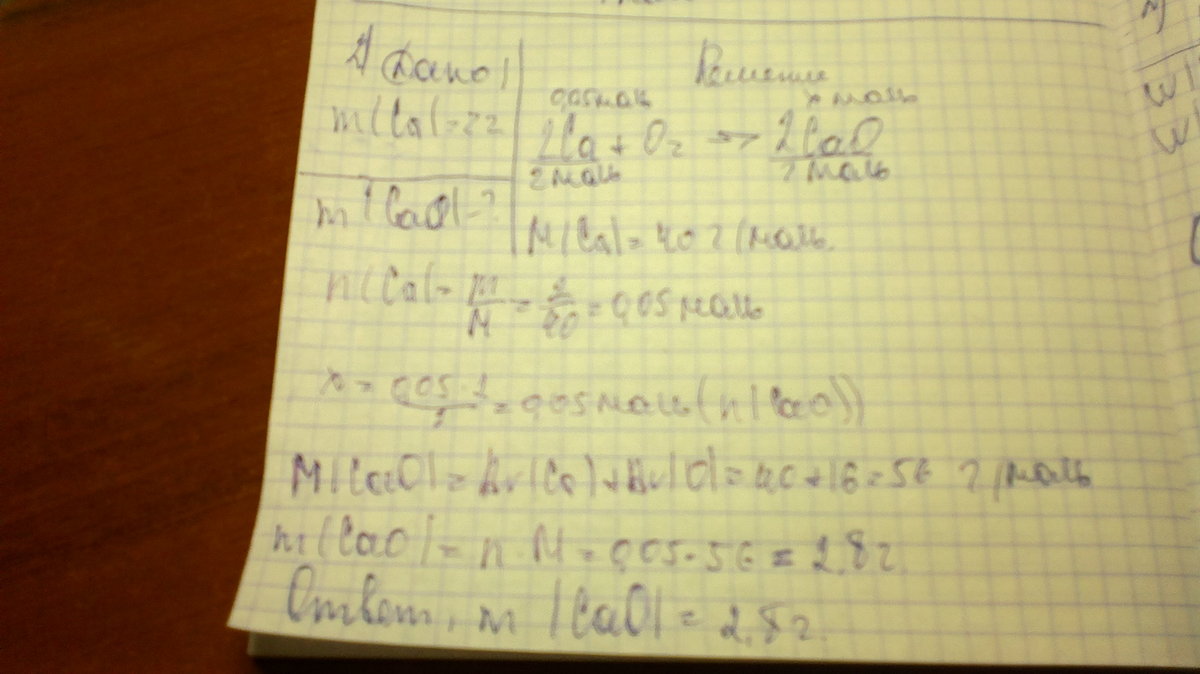 2) Дано|
Решение
m(Ca)=2г
0,05моль
х моль
2Ca + O₂ → 2CaO
2моль
2моль
m(CaO)-?
M(Ca)=40 г/моль.
n(Ca)= m/M = 2/40 = 0,05 моль
x = 0,05·2/2 = 0,05моль(n(CaO))
M(CaO)= Ar(Ca)+Ar(O)=40+16=56 г/моль
m(CaO)= n·M = 0,05·56 = 2,8г.
Ответ, m (CaO) = 2,8г.